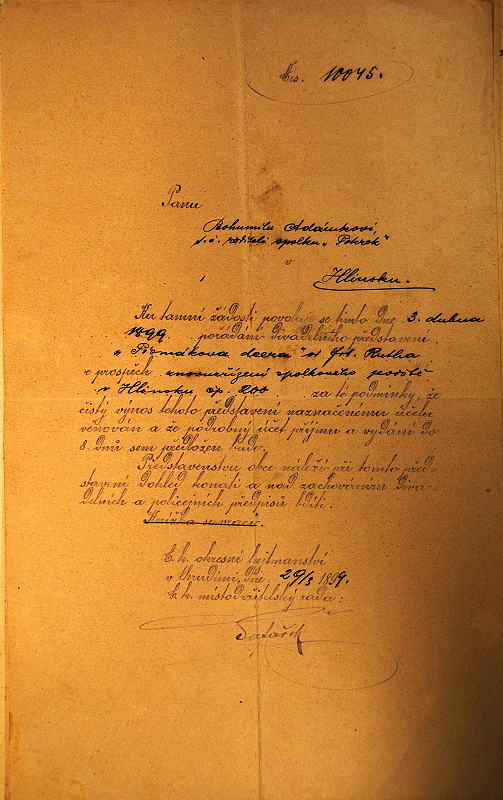 Čís. 10045.
Panu
Bohumilu Adámkovi,
t. č. řediteli spolku „Pokrok"
v
Hlinsku.
Ku tamní žádosti povoluje se tímto dne 3. dubna
1899 pořádání divadelního představení
„Pašerákova dcera" od Jos. Rutha
v prospěch znovuzřízení spolkového
v Hlinsku čp. 200 za té podmínky, že
čistý výnos tohoto představení naznačenému účelu
věnován a že podrobný účet příjmu a vydání do
8. dnů sem předložen bude.
Představenstvu obce náleží při tomto před
stavení dohled konati a nad zachováním diva-
delních a policejních předpisů bdíti.
Knížka se vrací.
C. k. okresní hejtmanství
v Chrudimi, dne 29/3 1899.
C. k. místodržitelský rada: